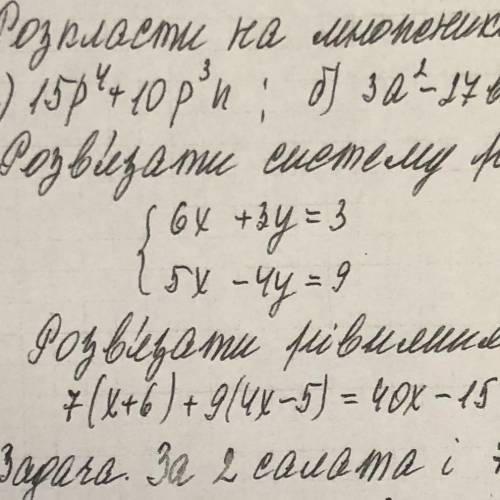 Розкласти на множник
) 15p⁴+10p³n ; б) 3a²-27в
Розв'язати систему р
{ 6x +3y = 3
5x -4y = 9
Розв'язати рівнянн
7(x+6) + 9(4x-5) = 40x-15
Задача. За 2 салата і 7